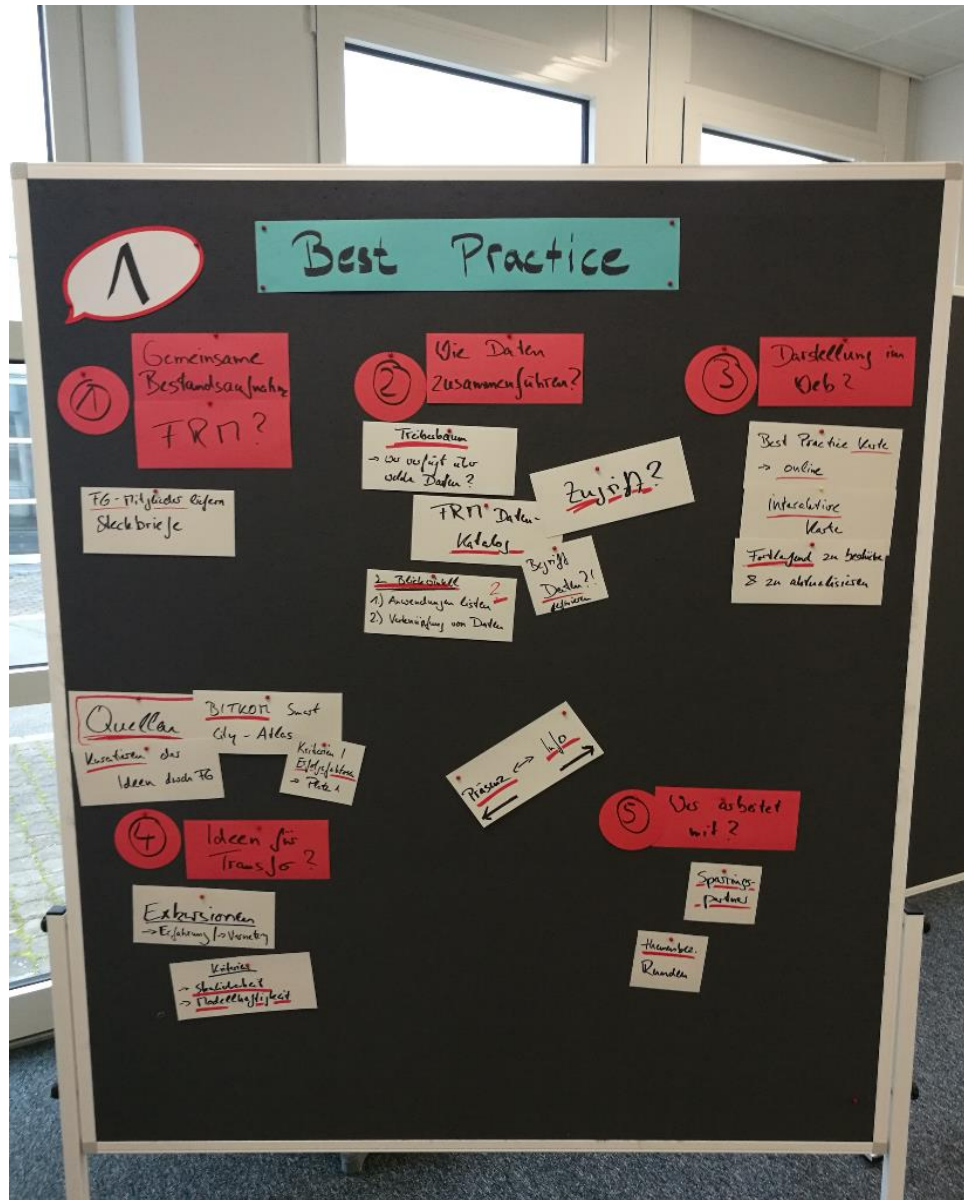 1
Best Practice
1
Gemeinsame
Bestandsaufnahme
FRM?
FG-Mitglieder liefern
Steckbriefe
2
Wie Daten
zusammenführen?
Treiberbaum
→ wer verfügt über
welche Daten?
Zugriff?
FRM Daten-
Katalog
Begriff
Daten?!
definieren
2 Blickwinkel
1) Anwendungen listen
2.) Verknüpfung von Daten
2
3
Darstellung im
Web?
Best Practice Karte
→ online
Interaktive
Karte
Fortlaufend zu
& zu aktualisieren
Quellen
BITKOM Smart
City-Atlas
Kuratieren der
Ideen durch FG
Kriterien!
Erfolgsfaktoren
→ Platz 1
Präsenz ↔ Info
4
Ideen für
Transfer?
Exkursionen
→ Erfahrung/→
→
→ Modellhaftigkeit
5
Wer arbeitet
mit?
Sparrings-
partner
themenbez.
Runden